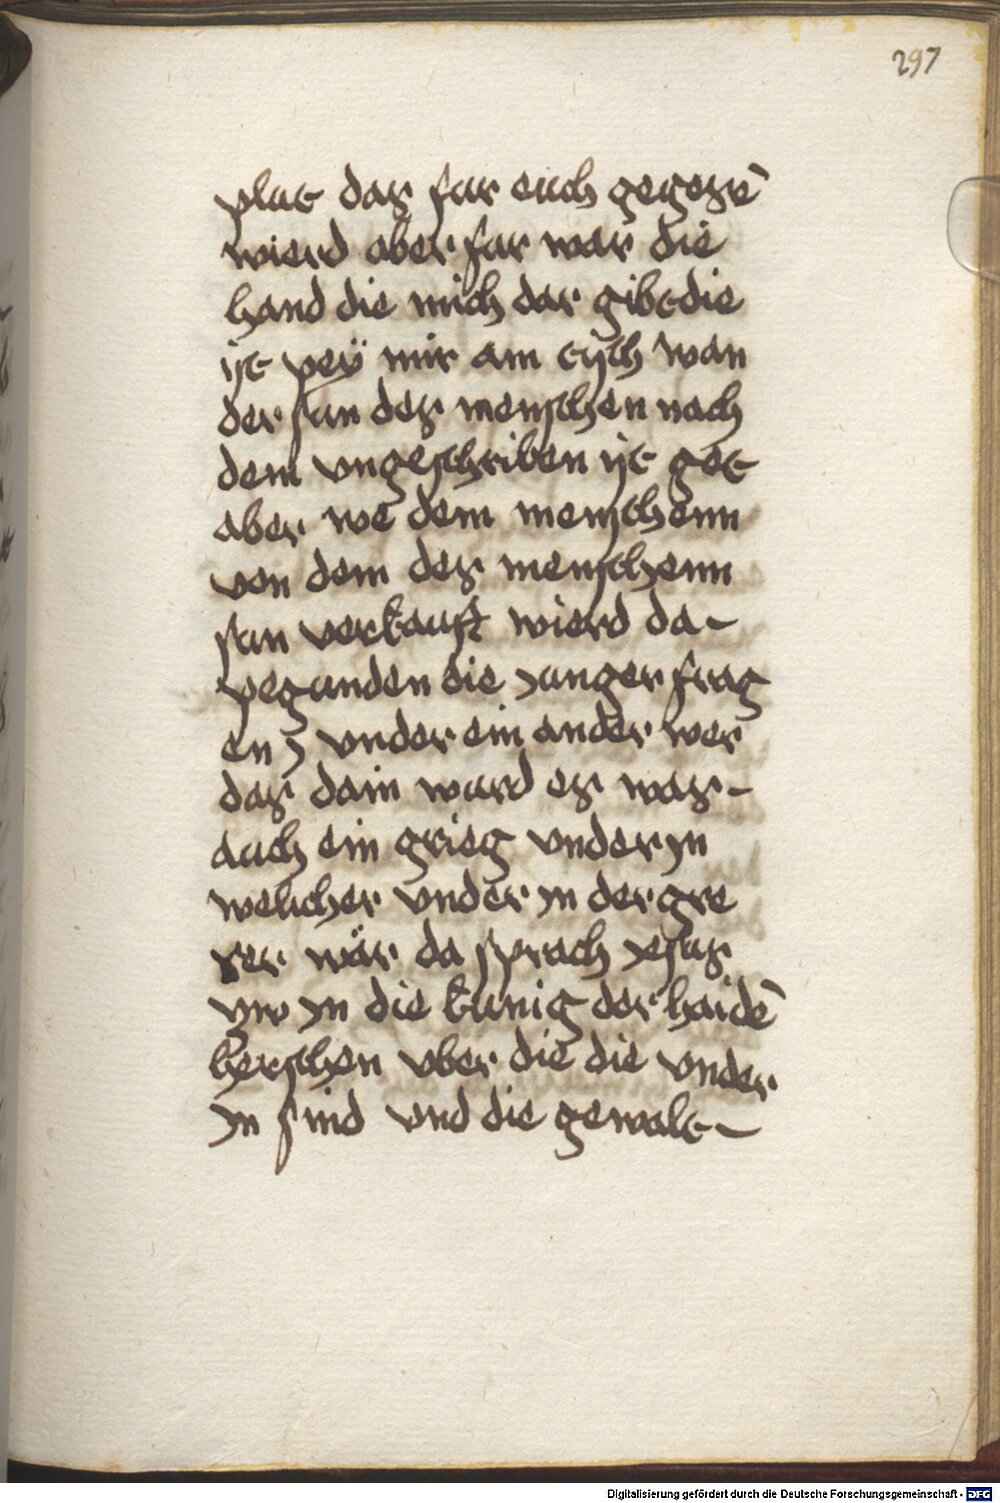 297
plut das fur euch gegosẽ
wierd aber fur war die
hand die mich dar gibt die
ist peÿ mir am tisch wan
der sun des menschen nach
dem vngeschriben ist get
aber we dem menschenn
von dem des menschenn
sun verkauft wierd da-
pegunden die Junger frag
en z vnder ein ander wer
das dain wurd es was-
auch ein grieg vnder yn
welicher vnder yn der gre
ser wär da sprach yesus
zw yn die kunig der haidẽ
herschen vber die die vnder
yn sind vnd die gewalt-
Digitalisierung gefördert durch die Deutsche Forschungsgemeinschaft - DFG